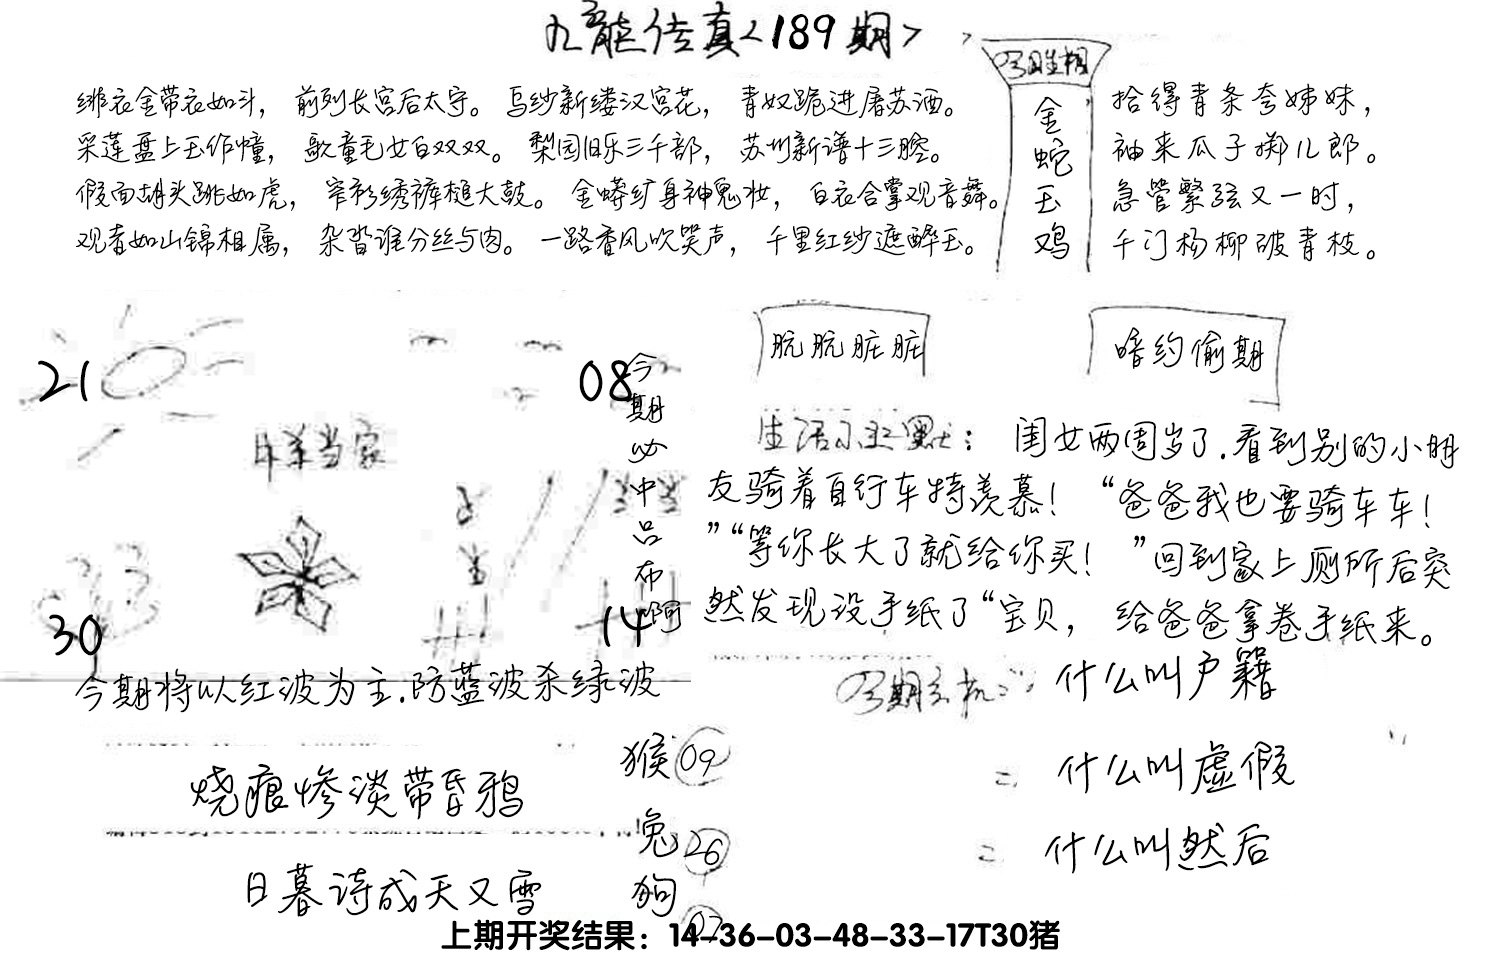 九龙传真<189期>
绯衣金带衣如斗，前列长宫后太守。乌纱新缕汉宫花，青奴跪进屠苏酒。
采莲盘上玉作幢，歌童毛女白双双。梨园旧乐三千部，苏州新谱十三腔。
假面胡头跳如虎，窄衫绣裤槌大鼓。金蟒纩身神鬼妆，白衣合掌观音舞。
观者如山锦相属，杂沓谁分丝与肉。一路香风吹笑声，千里红纱遮醉玉。
今日生相
金
蛇
玉
鸡
拾得青条夸姊妹，
袖来瓜子掷儿郎。
急管繁弦又一时，
千门杨柳破青枝。
21
08
30
14
今
期
必
中
吕
布
啊
今期将以红波为主.防蓝波杀绿波
朊朊脏脏
暗约偷期
生活小幽默：闺女两周岁了.看到别的小朋
友骑着自行车特羡慕！“爸爸我也要骑车车！
”“等你长大了就给你买！”回到家上厕所后突
然发现没手纸了“宝贝，给爸爸拿卷手纸来。
什么叫户籍
= 什么叫虚假
= 什么叫然后
烧痕惨淡带昏鸦
日暮诗成天又雪
猴 09
兔 26
狗
上期开奖结果：14-36-03-48-33-17T30猪